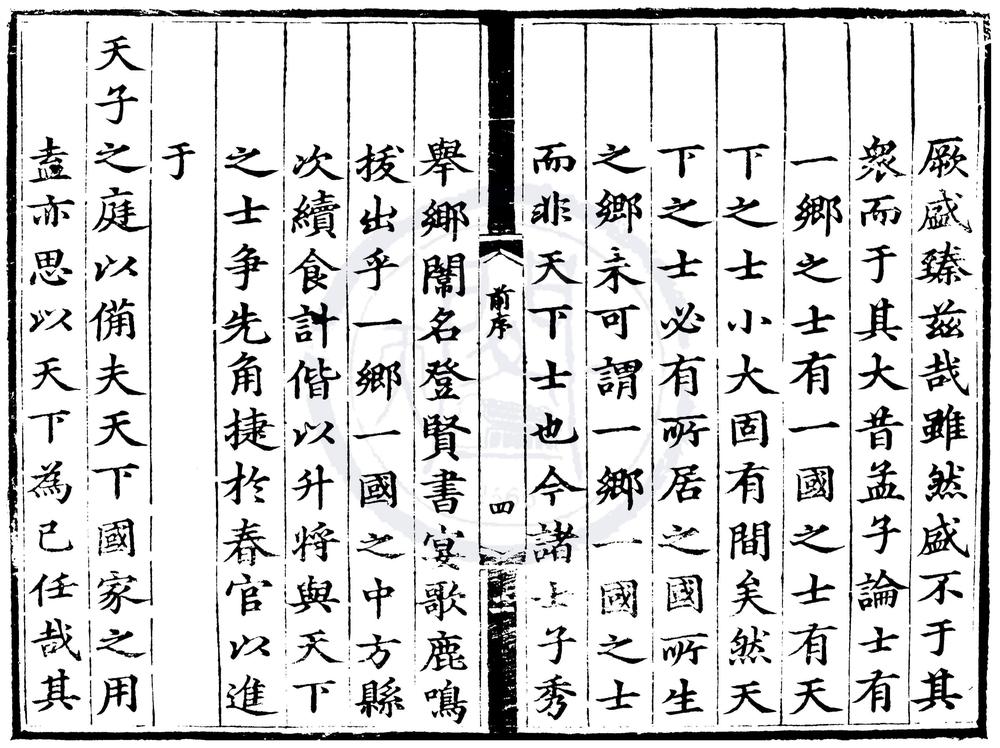 厥盛臻兹哉雖然盛不于其
衆而于其大昔孟子論士有
一鄉之士有一國之士有天
下之士小大固有間矣然天
下之士必有所居之國所生
之鄉未可謂一鄉一國之士
而非天下士也今諸士子秀
前序
四
舉鄉闈名登賢書宴歌鹿鳴
拔出乎一鄉一國之中方縣
次續食計偕以升將與天下
之士争先角捷於春官以進
于
天子之庭以備夫天下國家之用
盍亦思以天下為己任哉其